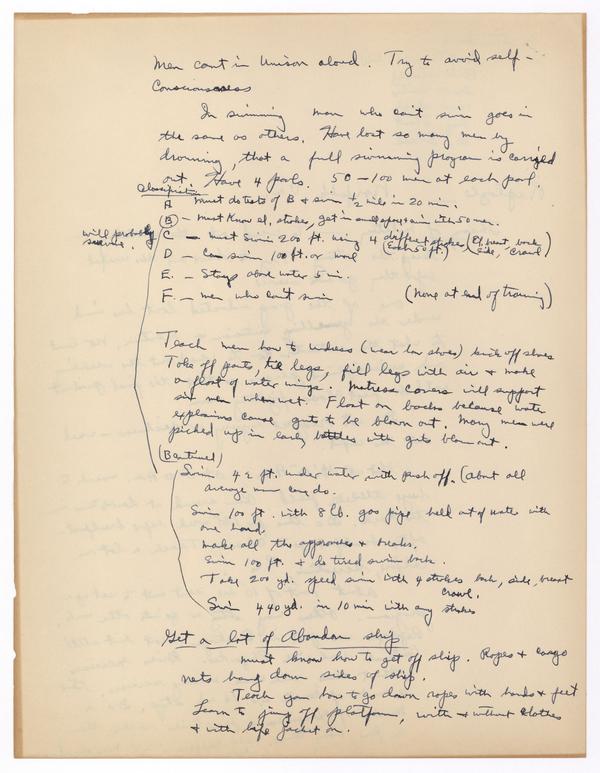 Men count in Unison aloud. Try to avoid self-
consciousness
In swimming men who can't swim goes in
the same as others. Have lost so many men by
drowning, that a full swimming program is carried
out. Have 4 pools. 50-100 men at each pool.
Classification
A must do tests of B & swim 1/2 mile in 20 min.
B - must know el. strokes, get in small space swim with 50 men.
will probably
survive.
C - must swim 200 ft. using 4 different strokes (El. breast, back
(Each 50 ft.) side, crawl)
D - Can swim 100 ft. or more
E. - Stays above water 5 min.
F. - men who can't swim (none at end of training)
Teach men how to undress (wear low shoes) kick off shoes
Take off pants, tie legs, fill legs with air & make
a float of water wings. Matress covers will support
six men when wet. Float on backs because water
explosions cause guts to be blown out. Many men were
picked up in early battles with guts blown out.
(B continued)
Swim 42 ft. under water with push off. (About all
average men can do.
Swim 100 ft. with 8 lb. gas pipe held out of water with
one hand.
Make all the approaches & breaks.
Swim 100 ft. & do tired swim back.
Take 200 yd. speed swim with 4 strokes back, side, breast
crawl.
Swim 440 yd. in 10 min with any strokes
Get a lot of Abandon ship
must know how to get off ship. Ropes & cargo
nets hang down sides of ship.
Teach you how to go down ropes with hands & feet
Learn to jump off platform, with & without clothes
& with life jacket on.